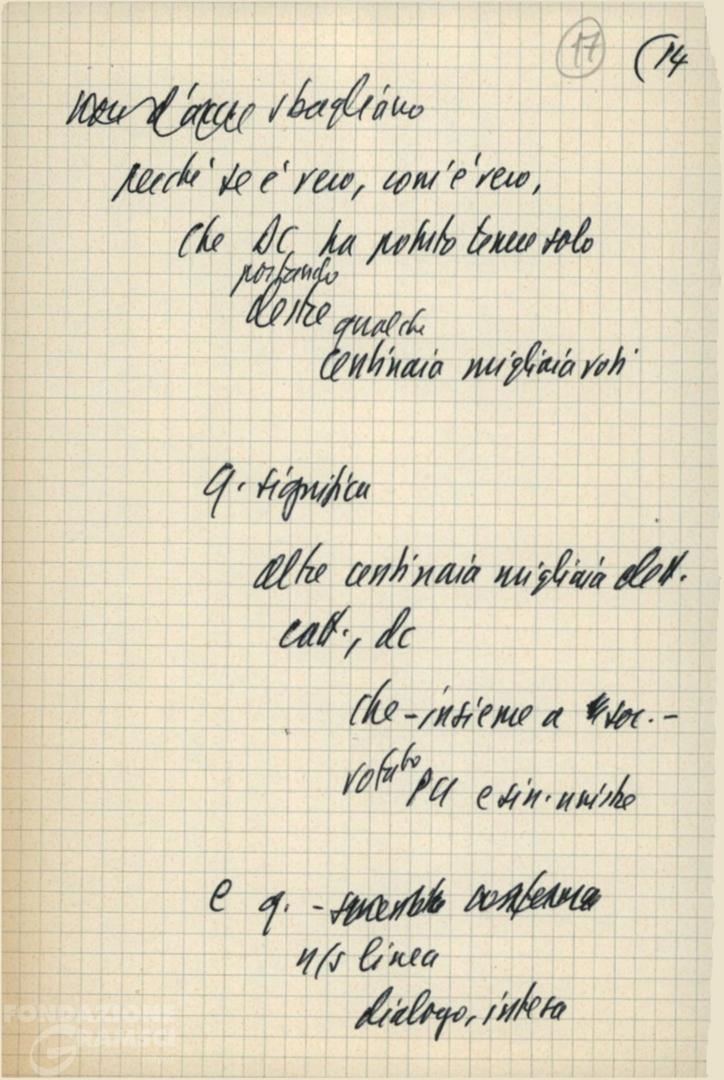 17 (14
sbagliano
perché se è vero, com'è vero,
che DC ha potuto tenere solo
portando
destre qualche
centinaia migliaia voti
q. significa
altre centinaia migliaia elett.
catt., dc
che - insieme a soc. -
votato PCI e sin. unite
e q. - smentita conferma
n/s linea
dialogo, intesa
FONDAZIONE
GRAMSCI